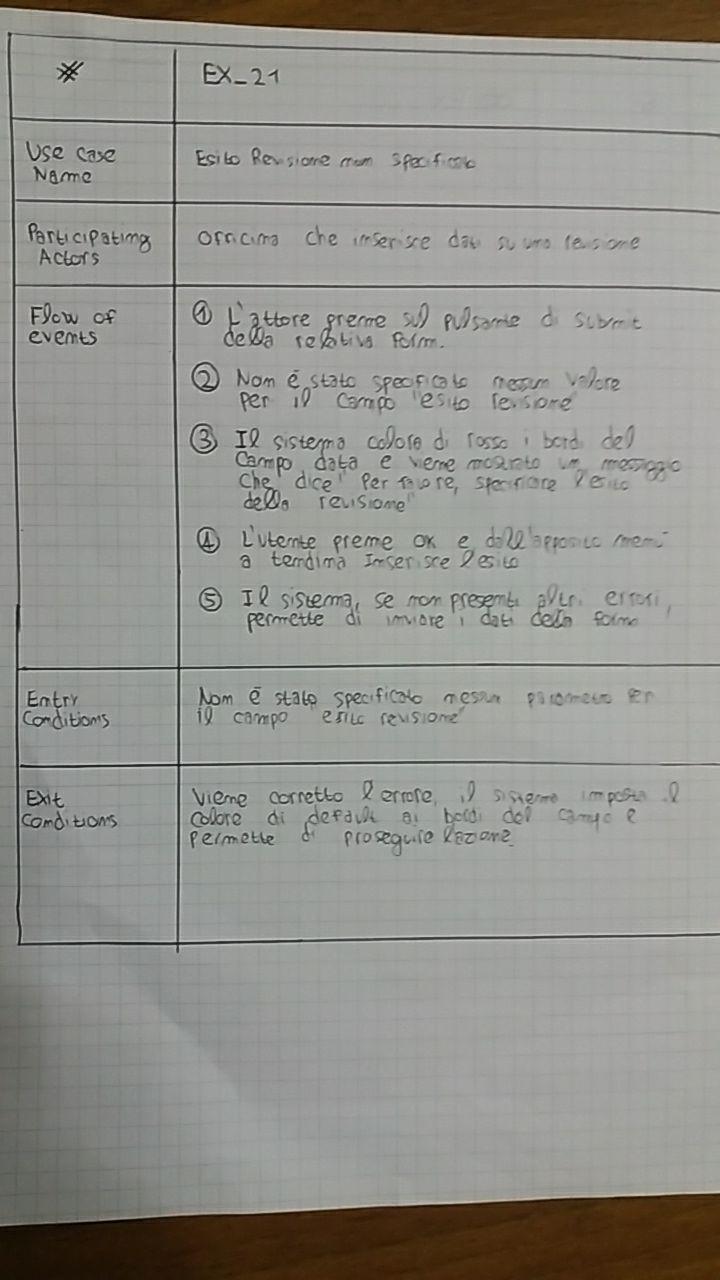 # EX_21
Use case
Name
Esito Revisione non specificato
Participating
Actors
Officina che inserisce dati su una revisione
Flow of
events
① L'attore preme sul pulsante di submit
della relativa form.
② Non è stato specificato nessun valore
per il campo "esito revisione"
③ Il sistema colora di rosso i bordi del
campo data e viene mostrato un messaggio
che dice "Per favore, specificare l'esito
della revisione"
④ L'utente preme OK e dall'apposito menù
a tendina Inserisce l'esito
⑤ Il sistema, se non presenti altri errori,
permette di inviare i dati della form
Entry
Conditions
Non è stato specificato nessun parametro per
il campo "esito revisione"
Exit
Conditions
Viene corretto l'errore, il sistema imposta il
colore di default ai bordi del campo e
permette di proseguire l'azione.